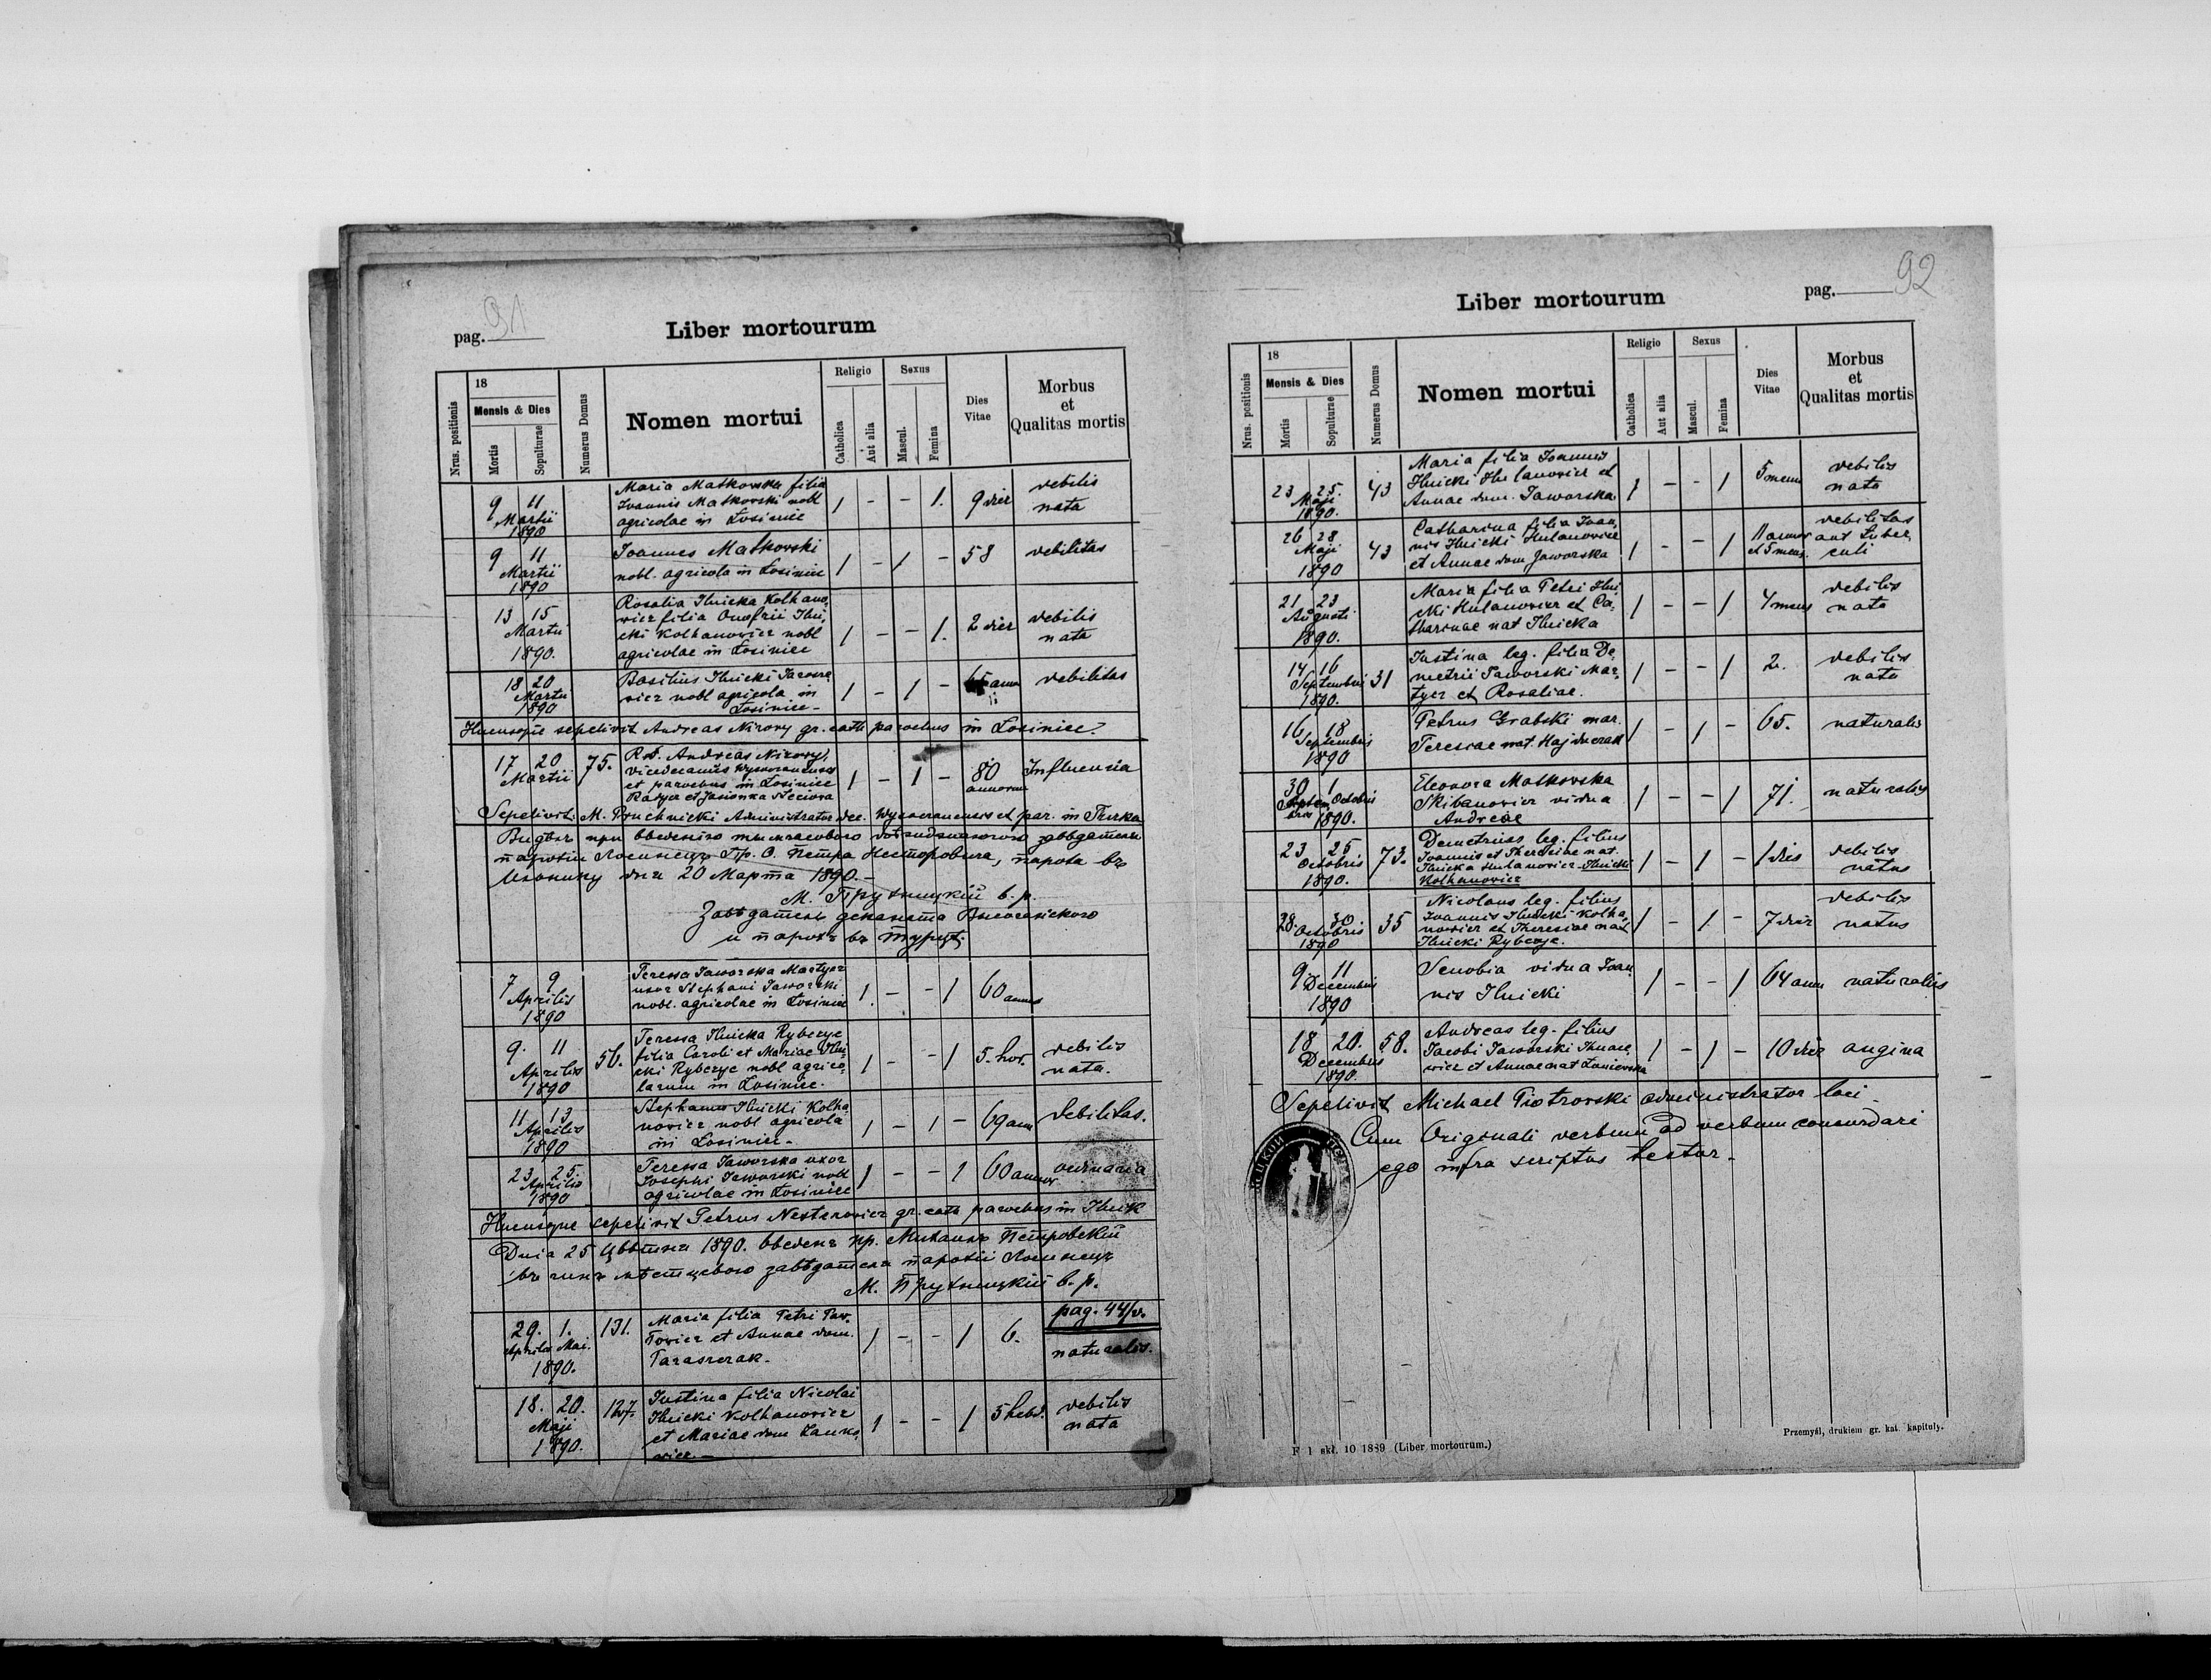 pag. 91
Liber mortourum
Nrus. positionis
18
Mensis & Dies
Mortis
Sepulturae
Numerus Domus
Nomen mortui
Religio
Catholica
Aut alia
Sexus
Mascul.
Femina
Dies
Vitae
Morbus
et
Qualitas mortis
9 11 Maria Matkowska filia 1 - - 1. 9 dier debilis
Martii Ioannis Matkovski nobl nata
1890 agricolae in Łosiniec
9 11 Ioannes Matkovski 1 - 1 - 58 debilitas
Martii nobl. agricola in Łosiniec
1890
13 15 Rosalia Ilnicka Kolhano,
Martii wicz filia Onufrii Ilni, 1 - - 1. 2 dier debilis
1890. cki Kolhanovicz nobl nata
agricolae in Łosiniec
18 20 Basilius Ilnicki 1 - 1 - ann debilitas
Martii vicz nobl agricola in
1890 Łosiniec-
Hucusque sepelivit Andreas Nirovy gr. cath parochus in Łosiniec
17 20 75. R.D. Andreas Nirovy, 1 - 1 - 80 Influenzia
Martii vicedecanus annorum
et parochus in Łosiniec
Radycz et Jasionka Steciova
Sepelivit: M. Pruchnicki Administrator dec. et par. in Turka
20 Марта 1890.-
завѣдателя
М. Прухницкій в. р.
Завѣдатель деканата Высочанского
и парохъ въ Турцѣ
7 9 Teressa Jaworska Martycz 1. - - 1 60 annor
Aprilis uxor Stephani Jaworski
1890 nobl. agricolae in Łosiniec
9. 11 56. Teressa Ilnicka Rybczyc 1 - - 1 5. hor. debilis
Aprilis filia Caroli et Mariae Ilni- nata.
1890 cki Rybczyc nobl agrico,
larum in Łosiniec.
11 13 Stephanus Ilnicki Kolha 1 - 1 - 69 ann debilitas.
Aprilis novicz nobl agricola
1890 in Łosiniec-
23 25. Teressa Jaworska uxor 1 - - 1 60 annor ordinaria
Aprilis Josephi Jaworski nobl
1890 agricolae in Łosiniec
Hucusque sepelivit Petrus Nesterovicz gr. cath parochus in Ilnik
Дня 25 Цвѣтня 1890. введенъ Михаилъ Петровскій
въ завѣдателя парохіи Лосинецъ
М. Прухницкій в. р.
pag. 44/v.
29. 1. 131. Maria filia Petri Paw- 1 - - 1 6. naturalis.
Aprilis Mai. łovicz et Annae dom.
1890. Taraszczak-
18. 20. 127. Justina filia Nicolai 1 - - 1 5 hebd. debilis
Maji Ilnicki Kolhanovicz nata
1890. et Mariae dom
wicz-
pag. 92
Liber mortourum
Nrus. positionis
18
Mensis & Dies
Mortis
Sepulturae
Numerus Domus
Nomen mortui
Religio
Catholica
Aut alia
Sexus
Mascul.
Femina
Dies
Vitae
Morbus
et
Qualitas mortis
23 25. 43 Maria filia Ioannis 1 - - 1 5 mens debilis
Maji Ilnicki Hulanovicz et nata
1890. Annae dom. Jaworska
26 28 43 Catharina filia Ioan, 1 - - 1 11 annor debilitas
Maji nis Ilnicki Hulanovicz et 5 mens. aut tuber,
1890 et Annae dom Jaworska culi
21 23 Maria filia Petri Ilni, 1 - - 1 4 mens debilis
Augusti cki Hulanovicz et Ca, nata
1890. tharinae nat Ilnicka
14 16 31 Justina leg. filia De, 1 - - 1 2. debilis
Septembris metrii Jaworski Mar, nata
1890. tycz et Rosaliae.
16 18 Petrus Grabski mar. 1 - 1 - 65. naturalis
Septembris Teressae nat. Hajduczak
1890
30 1 Eleonora Matkovska 1 - - 1 71. naturalis
Septem Octobris Skibanovicz vidua
bris 1890. Andreae
23 25 73. Demetrius leg. filius 1 - 1 - 1 dies debilis
Octobris Ioannis et Theresiae nat. natus
1890. Ilnicka Hulanovicz-Ilnicki
Kolhanovicz
28. 30. 35 Nicolaus leg. filius 1 - 1. - 7 dier debilis
Octobris Ioannis Ilnicki Kolha, natus
1890 novicz et Theresiae nat
Ilnicki Rybczyc.
9 11 Senobia vidua Ioan 1 - - 1 64 ann naturalis
Decembris nis Ilnicki
1890
18 20. 58. Andreas leg. filius 1 - 1 - 10 dier angina
Decembris Jacobi Jaworski
1890. wicz et Annae nat
Sepelivit Michael Piotrovski administrator loci-
Cum Originali verbum ad verbum concordari
ego infra scriptus testor-
F 1 skł. 10 1889 (Liber mortourum.)
Przemyśl, drukiem gr. kat. kapituły.